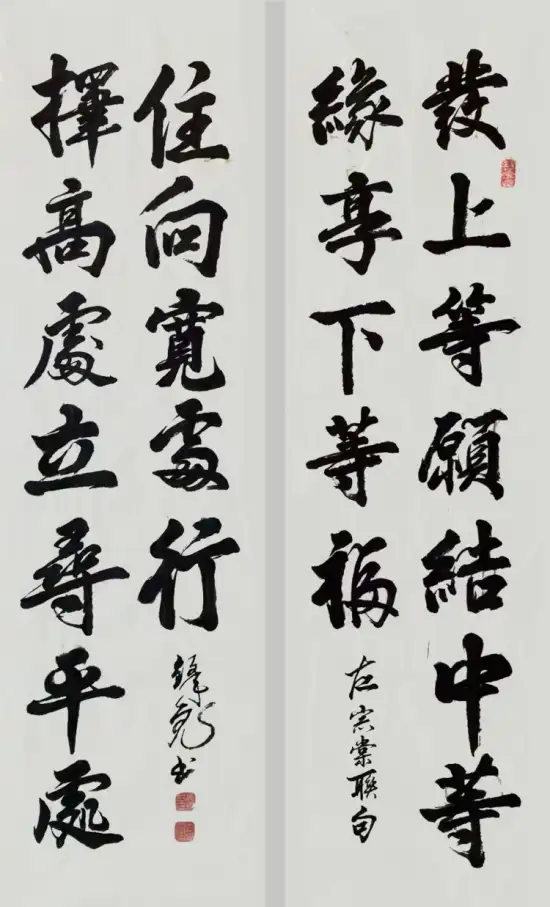 發上等願結中等
緣享下等福
左宗棠聯句
擇高處立尋平處
住向寬處行
书